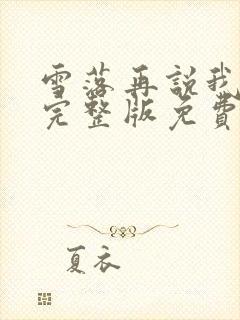 雪落再説我
完整版免費
夏衣